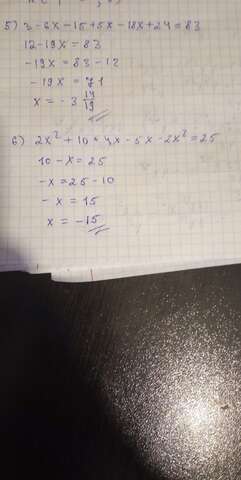 5) 3-6x-15+5x-18x+24=83
12-19x=83
-19x=83-12
-19x=71
x=-3 14/19
6) 2x²+10+4x-5x-2x²=25
10-x=25
-x=25-10
-x=15
x=-15